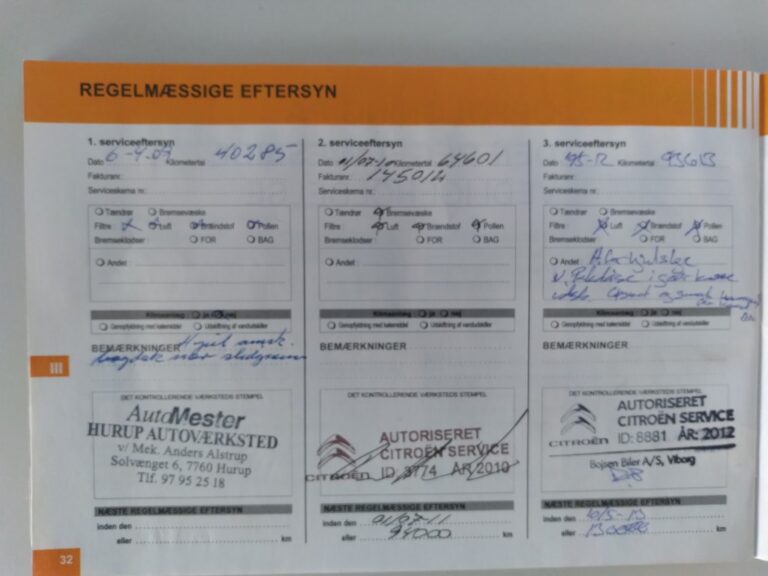 REGELMÆSSIGE EFTERSYN
1. serviceeftersyn
Dato 6-4-09 Kilometertal 40285
Fakturanr:
Serviceskema nr.:
Tændrør Bremsevæske
Filtre : Luft Brændstof Pollen
Bremseklodser FOR BAG
Andet :
Klimaanlæg : ja nej
Genopfyldning med kølemiddel Udskiftning af vandudskiller
BEMÆRKNINGER Hjul
DET KONTROLLERENDE VÆRKSTEDS STEMPEL
AutoMester
HURUP AUTOVÆRKSTED
v/ Mek. Anders Alstrup
Solvænget 6, 7760 Hurup
Tlf. 97 95 25 18
NÆSTE REGELMÆSSIGE EFTERSYN
inden den
eller km
2. serviceeftersyn
Dato 01/07-10 Kilometertal 64601
Fakturanr:
Serviceskema nr.:
Tændrør Bremsevæske
Filtre : Luft Brændstof Pollen
Bremseklodser FOR BAG
Andet :
Klimaanlæg : ja nej
Genopfyldning med kølemiddel Udskiftning af vandudskiller
BEMÆRKNINGER
DET KONTROLLERENDE VÆRKSTEDS STEMPEL
AUTORISERET
CITROËN SERVICE
CITROËN ID 3774 ÅR 2010
NÆSTE REGELMÆSSIGE EFTERSYN
inden den 01/07-11
eller 94000 km
3. serviceeftersyn
Dato Kilometertal 93613
Fakturanr:
Serviceskema nr.:
Tændrør Bremsevæske
Filtre : Luft Brændstof Pollen
Bremseklodser FOR BAG
Andet :
Klimaanlæg : ja nej
Genopfyldning med kølemiddel Udskiftning af vandudskiller
BEMÆRKNINGER
DET KONTROLLERENDE VÆRKSTEDS STEMPEL
AUTORISERET
CITROËN SERVICE
CITROËN ID: 8881 ÅR: 2012
Bojsen Biler A/S, Viborg
NÆSTE REGELMÆSSIGE EFTERSYN
inden den 10/5-13
eller km
III
32